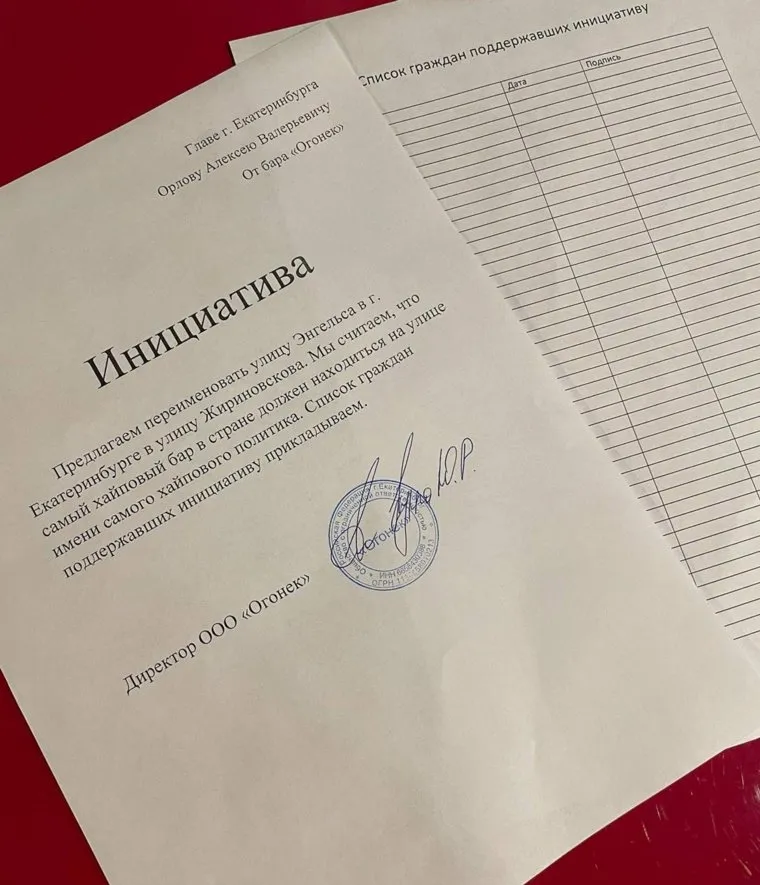 Главе г. Екатеринбурга
Орлову Алексею Валерьевичу
От бара «Огонек»
Инициатива
Предлагаем переименовать улицу Энгельса в г.
Екатеринбурге в улицу Жириновскова. Мы считаем, что
самый хайповый бар в стране должен находиться на улице
имени самого хайпового политика. Список граждан
поддержавших инициативу прикладываем.
Директор ООО «Огонек»
Ю.Р.
Российская Федерация г. Екатеринбург
Общество с ограниченной ответственностью
«Огонек»
ИНН
ОГРН
Список граждан поддержавших инициативу
Дата
Подпись